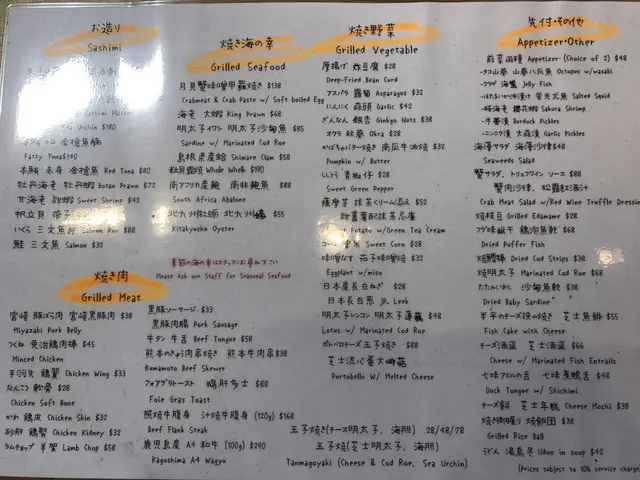 お造り
Sashimi
Urchin $180
Fatty Tuna $140
本鮪 赤身 金槍魚 Red Tuna $80
牡丹海老 牡丹蝦 Botan Prawn $72
甘海老 甜蝦 Sweet Shrimp $42
帆立貝 帶子
いくら 三文魚籽 Salmon Roe $88
鮭 三文魚 Salmon $32
焼き海の幸
Grilled Seafood
月見蟹味噌甲羅焼き $138
Crabmeat & Crab Paste w/ Soft boiled Egg
海老 大蝦 King Prawn $68
明太子イワシ 明太子沙甸魚 $85
Sardine w/ Marinated Cod Roe
島根県産蛤 Shimane Clam $58
粒貝 Whole Whelk $190
南アフリカ産鮑 南非鮑魚 $88
South Africa Abalone
北九州 北九州蠔 $55
Kitakyushu Oyster
季節の海の幸はスタッフにお尋ね下さい
Please Ask our Staff for Seasonal Seafood
焼き野菜
Grilled Vegetable
厚揚げ 炸豆腐 $28
Deep-Fried Bean Curd
アスパラ 露筍 Asparagus $32
にんにく 蒜頭 Garlic $42
ぎんなん 銀杏 Ginkgo Nuts $38
オクラ 秋葵 Okra $28
かぼちゃバター焼き 南瓜牛油燒 $32
Pumpkin w/ Butter
ししとう 青椒仔 $28
Sweet Green Pepper
薩摩芋 抹茶くりーム添え $52
甜薯蕃配抹茶忌廉
Potato w/Green Tea Cream
コーン 粟米 Sweet Corn $28
味噌なす 茄子味噌燒 $32
Eggplant w/miso
日本産長白ねぎ $28
日本長白葱 Jp. Leek
明太子レンコン 明太子蓮藕 $48
Lotus w/ Marinated Cod Roe
ポトベロチーズ玉子焼き $88
芝士流心蛋大啡菇
Portobello w/ Melted Cheese
先付・その他
Appetizer・Other
前菜両種 Appetizer (Choice of 2) $48
・タコ山葵 山葵八爪魚 Octopus w/wasabi
・クラゲ 海蜇 Jelly Fish
・ほたるいか沖漬け 螢光魷魚 Salted Squid
・桜海老 櫻花蝦 Sakura Shrimp
・牛蒡漬 Burdock Pickles
・ニンニク漬 大蒜漬 Garlic Pickles
海藻サラダ 海藻沙律 $48
Seaweed Salad
蟹サラダ、トリュフワイン ソース $88
蟹肉沙律、松露紅酒汁
Crab Meat Salad w/Red Wine Truffle Dressin
焼枝豆 Grilled Edamame $28
フグ味醂干 鶏泡魚乾 $68
Dried Puffer Fish
焼鱈棒 Dried Cod Strips $38
焼明太子 Marinated Cod Roe $68
たたみいわし 沙甸魚乾 $38
Dried Baby Sardine
半平のチーズ挟み焼き 芝士魚餅 $55
Fish Cake with Cheese
チーズ酒盗 芝士酒盗 $66
Cheese w/ Marinated Fish Entrails
七味アヒルの舌 七味煮鴨舌 $48
Duck Tongue w/ Shichimi
チーズ餅 芝士年糕 Cheese Mochi $38
焼き御握り 燒飯團 $38
Grilled Rice Ball
うどん 湯烏冬 Udon in soup $42
(Prices subject to 10% service charge
焼き肉
Grilled Meat
宮崎 豚ばら肉 宮崎黑豚肉 $38
Miyazaki Pork Belly
つくね 免治雞肉棒 $45
Minced Chicken
手羽先 雞翼 Chicken Wing $33
なんこつ 軟骨 $28
Chicken Soft Bone
かわ 鶏皮 Chicken Skin $32
砂肝 雞腎 Chicken Kidney $32
ラムチョップ 羊架 Lamb Chop $58
黒豚ソーセージ $33
黒豚肉腸 Pork Sausage
牛タン 牛舌 Beef Tongue $58
熊本のぎゅう肉串焼き 熊本牛肉串 $38
Kumamoto Beef Skewer
フォアグラトースト 鴨肝多士 $88
Foie Gras Toast
照焼牛腹身 汁燒牛腹身 (120g) $168
Beef Flank Steak
鹿児島産 A4 和牛 (100g) $290
Kagoshima A4 Wagyu
玉子焼き(チーズ明太子、海胆) 28/48/78
玉子燒(芝士明太子、海膽)
Tamagoyaki (Cheese & Cod Roe, Sea Urchin)